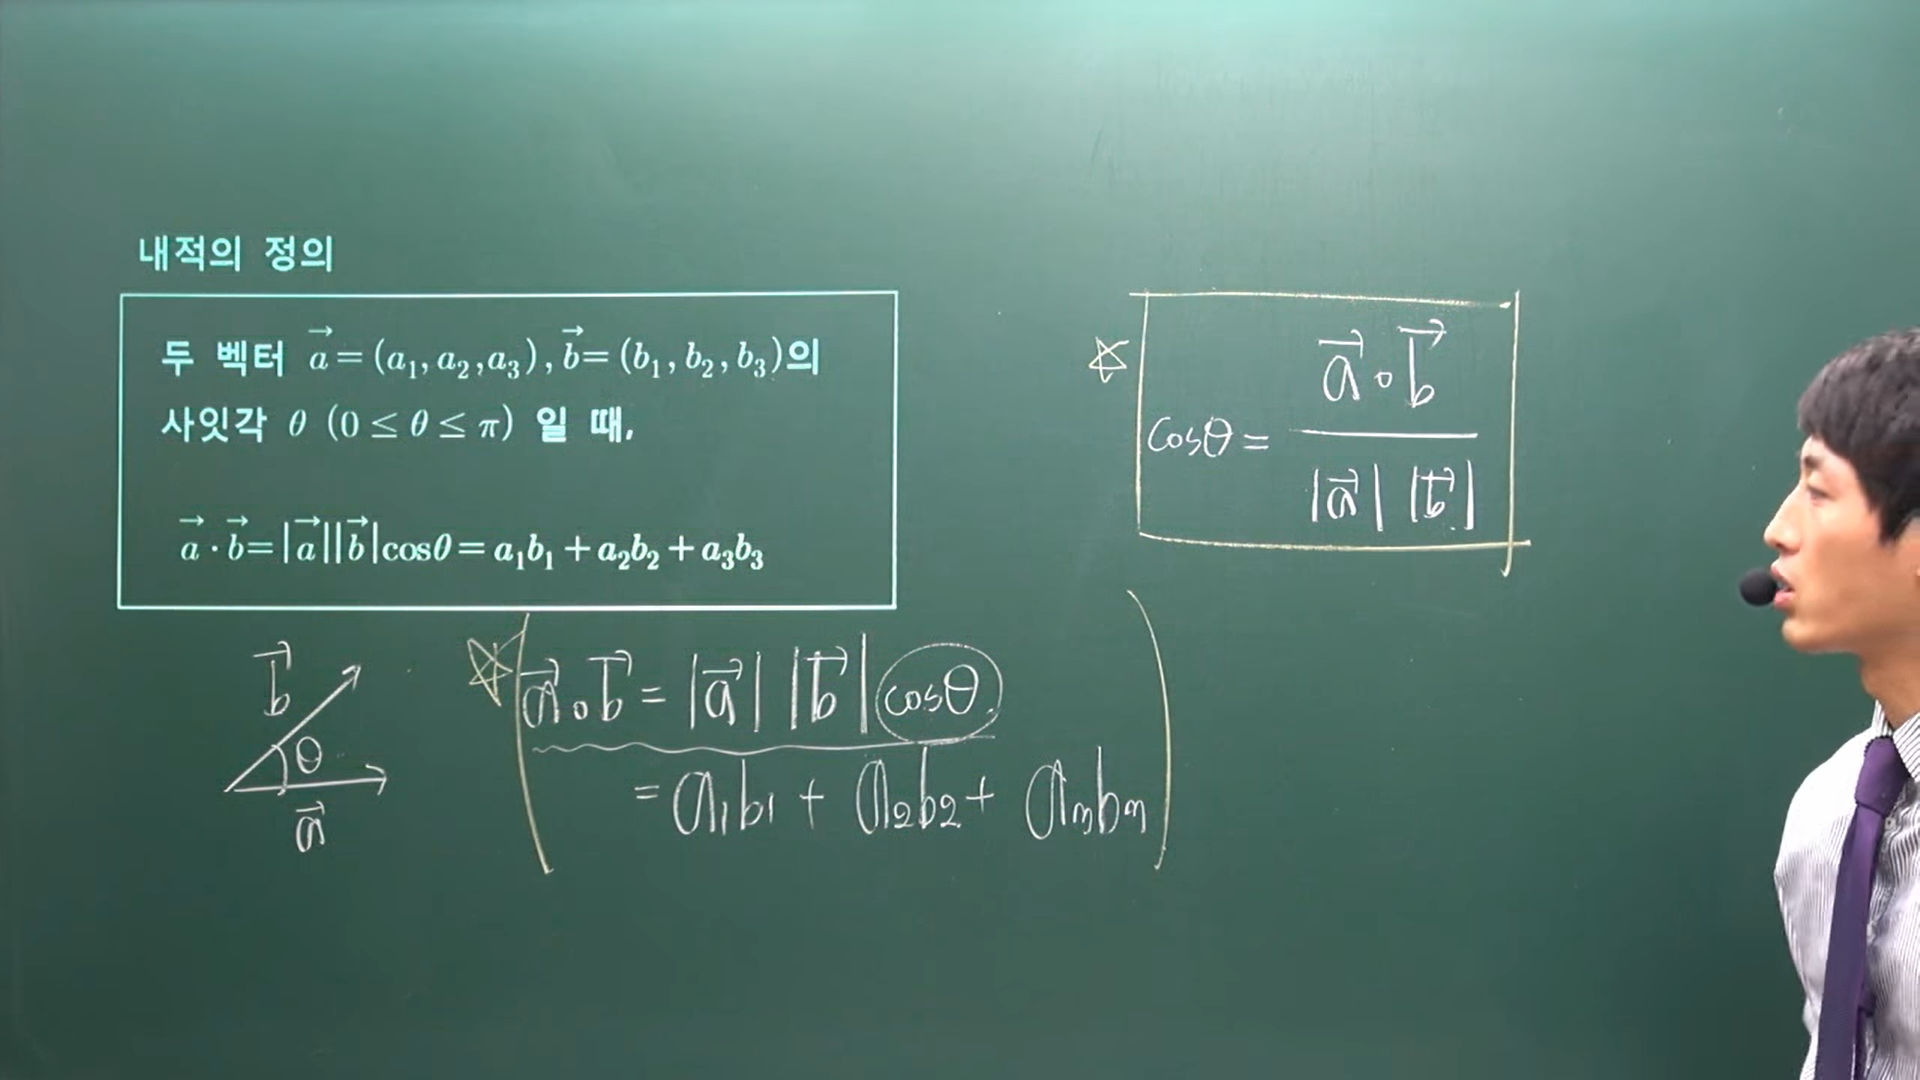 내적의 정의
두 벡터 a⃗ = (a₁, a₂, a₃), b⃗ = (b₁, b₂, b₃)의
사잇각 θ (0 ≤ θ ≤ π) 일 때,
a⃗ · b⃗ = |a⃗||b⃗|cosθ = a₁b₁ + a₂b₂ + a₃b₃
cosθ = a⃗ ∘ b⃗ / |a⃗| |b⃗|
b⃗
θ
a⃗
a⃗ ∘ b⃗ = |a⃗| |b⃗| cosθ
= a₁b₁ + a₂b₂ + a₃b₃